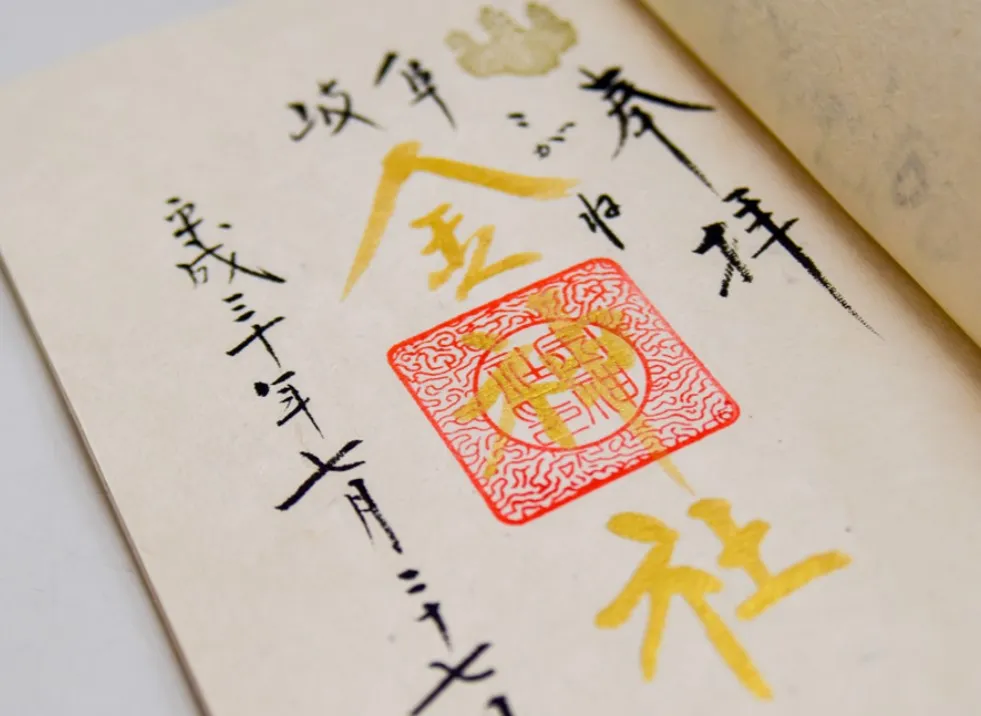 奉拝
岐阜
こがね
金神社
平成三十年七月二十七